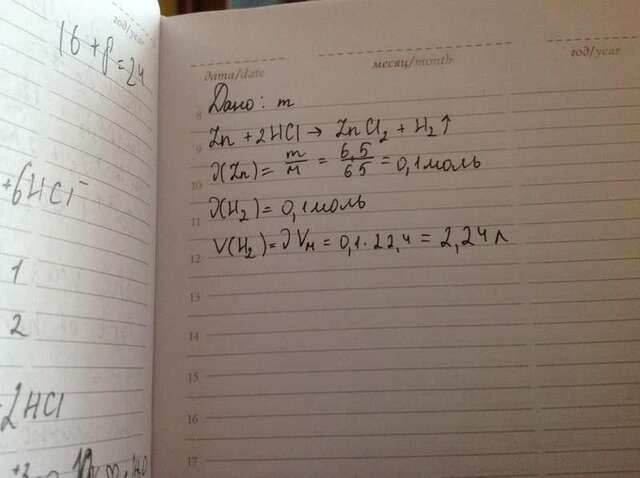 год/year
16 + 8 = 24
+6HCl
1
2
2HCl
дата/date
месяц/month
год/year
8 Дано: m
9 Zn + 2HCl → ZnCl₂ + H₂↑
10 ν(Zn) = m/M = 6,5/65 = 0,1 моль
11 ν(H₂) = 0,1 моль
12 V(H₂) = νVм = 0,1 · 22,4 = 2,24 л
13
14
15
16
17